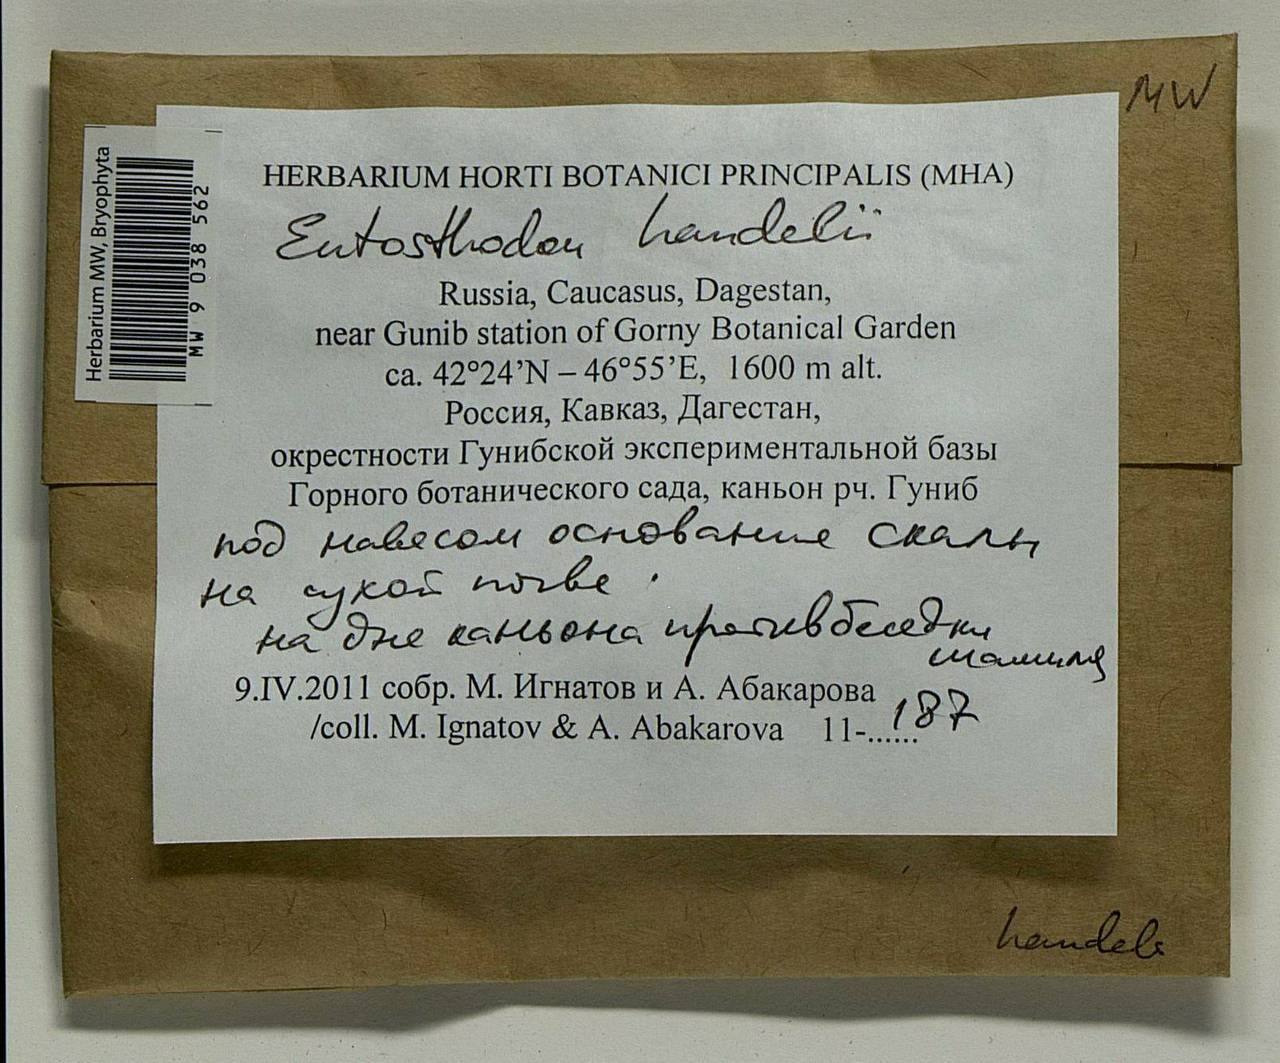 MW
Herbarium MW, Bryophyta
MW 9 038 562
HERBARIUM HORTI BOTANICI PRINCIPALIS (MHA)
Entosthodon handelii
Russia, Caucasus, Dagestan,
near Gunib station of Gorny Botanical Garden
ca. 42°24’N – 46°55’E, 1600 m alt.
Россия, Кавказ, Дагестан,
окрестности Гунибской экспериментальной базы
Горного ботанического сада, каньон рч. Гуниб
под навесом основание скалы
на сухой почве.
на дне каньона против беседки
Шамиля
9.IV.2011 собр. М. Игнатов и А. Абакарова
/coll. M. Ignatov & A. Abakarova 11-......187
handeli